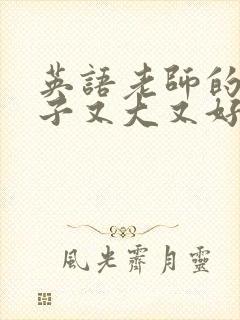 英語老師的
子又大又好
風光霽月靈